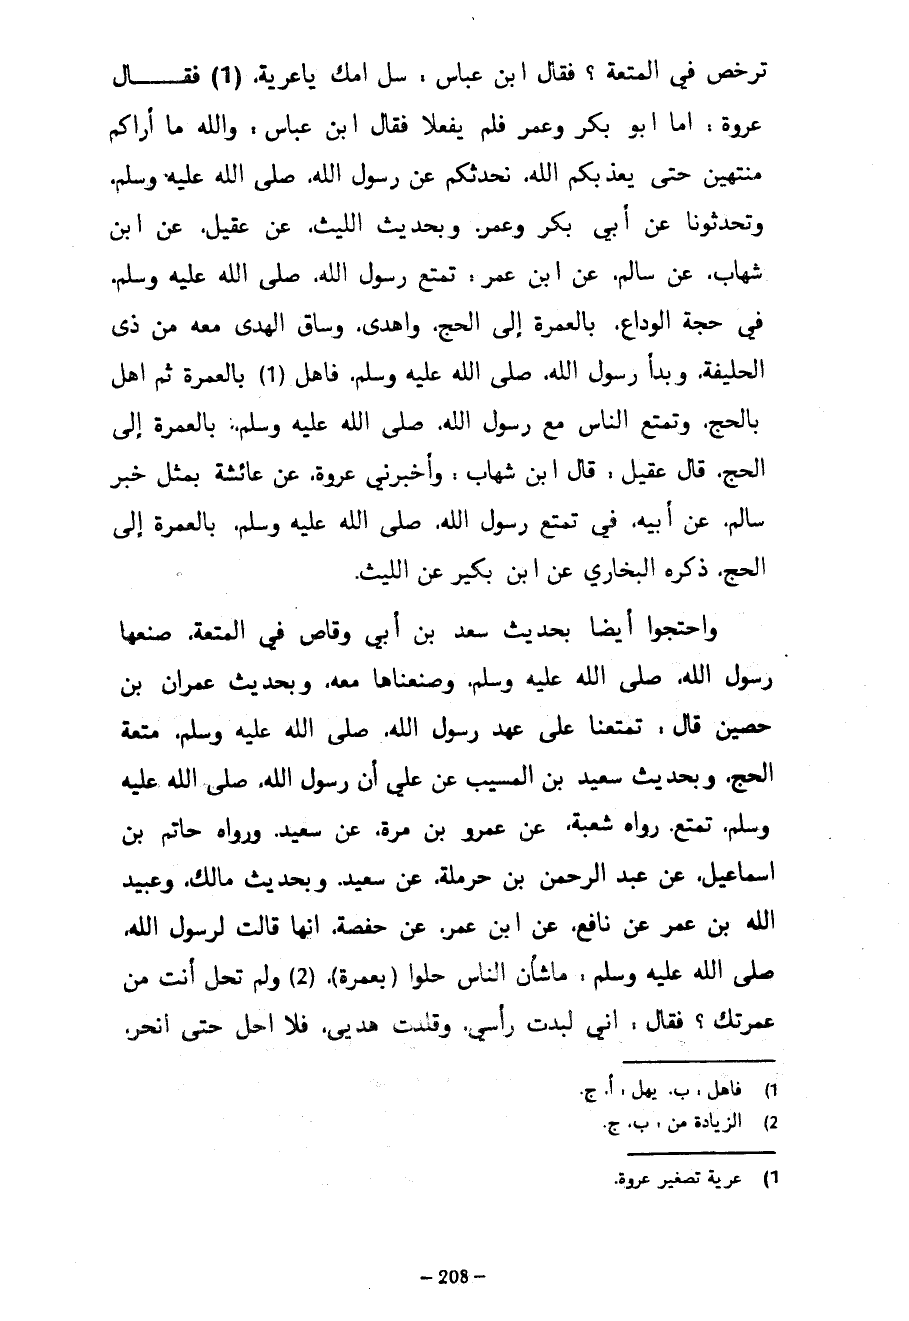 ترخص في المتعة ؟ فقال ابن عباس : سل امك ياعرية، (1) فقـــــال
عروة : اما ابو بكر وعمر فلم يفعلا فقال ابن عباس : والله ما أراكم
منتهين حتى يعذبكم الله، نحدثكم عن رسول الله، صلى الله عليه وسلم،
وتحدثونا عن أبي بكر وعمر. وبحديث الليث، عن عقيل، عن ابن
شهاب، عن سالم، عن ابن عمر : تمتع رسول الله، صلى الله عليه وسلم،
في حجة الوداع، بالعمرة إلى الحج، واهدى، وساق الهدى معه من ذى
الحليفة، وبدأ رسول الله، صلى الله عليه وسلم، فاهل (1) بالعمرة ثم اهل
بالحج، وتمتع الناس مع رسول الله، صلى الله عليه وسلم، بالعمرة إلى
الحج، قال عقيل : قال ابن شهاب : وأخبرني عروة، عن عائشة بمثل خبر
سالم، عن أبيه، في تمتع رسول الله، صلى الله عليه وسلم، بالعمرة إلى
الحج، ذكره البخاري عن ابن بكير عن الليث.
واحتجوا أيضا بحديث سعد بن أبي وقاص في المتعة، صنعها
رسول الله، صلى الله عليه وسلم، وصنعناها معه، وبحديث عمران بن
حصين قال : تمتعنا على عهد رسول الله، صلى الله عليه وسلم، متعة
الحج، وبحديث سعيد بن المسيب عن علي أن رسول الله، صلى الله عليه
وسلم، تمتع. رواه شعبة، عن عمرو بن مرة، عن سعيد. ورواه حاتم بن
اسماعيل، عن عبد الرحمن بن حرملة، عن سعيد. وبحديث مالك، وعبيد
الله بن عمر عن نافع، عن ابن عمر، عن حفصة، انها قالت لرسول الله،
صلى الله عليه وسلم : ماشأن الناس حلوا (بعمرة)، (2) ولم تحل أنت من
عمرتك ؟ فقال : اني لبدت رأسي، وقلدت هديي، فلا احل حتى انحر،
1) فاهل : ب، يهل : أ. ج.
2) الزيادة من : ب، ج.
1) عرية تصغير عروة.
– 208 –